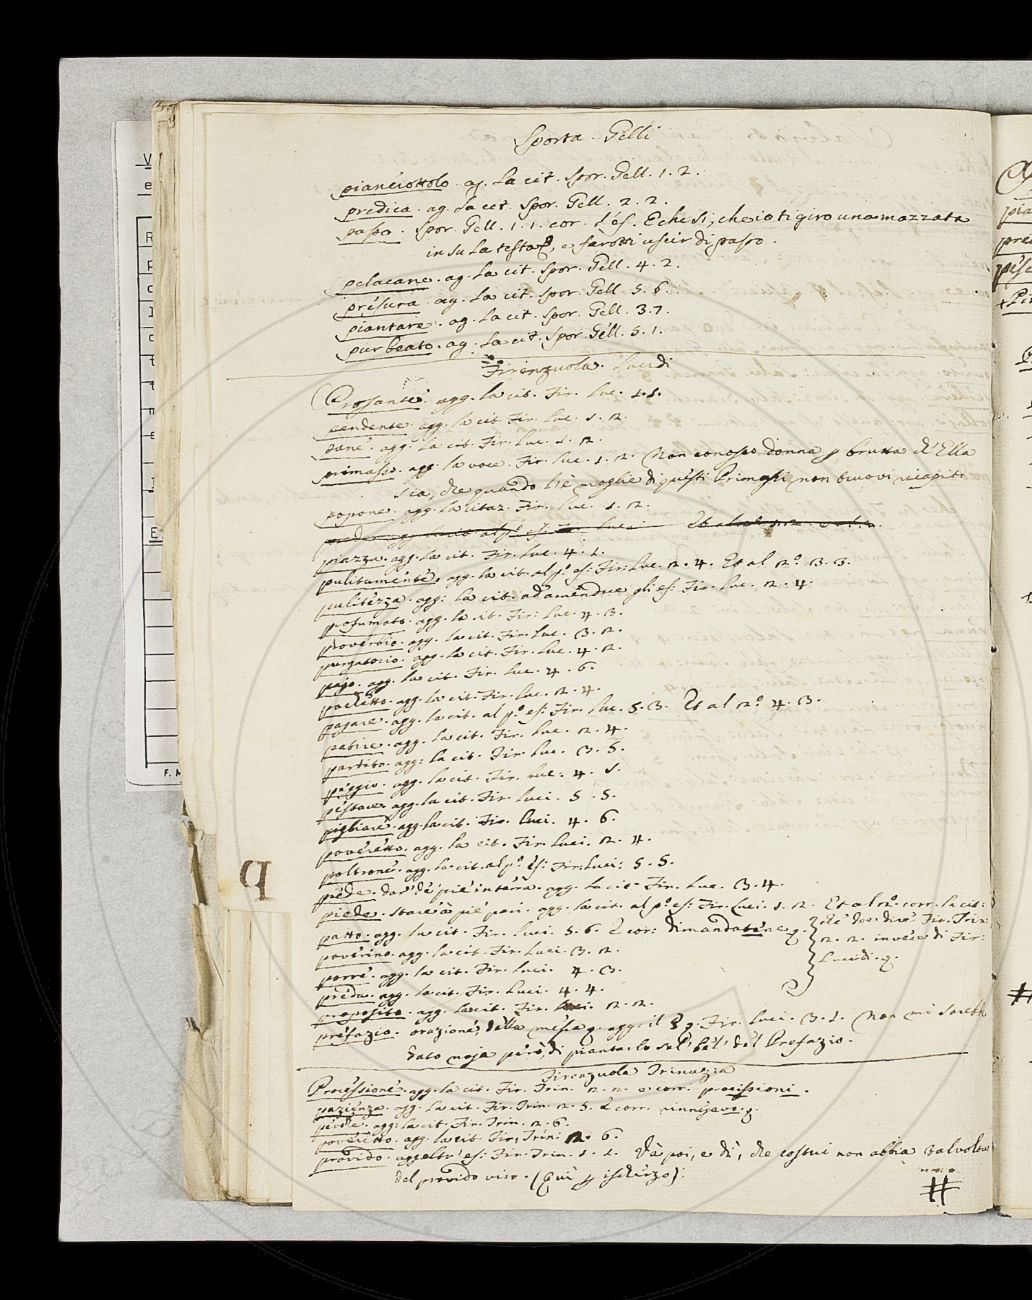 Sporta. Gelli
pianciottolo. ag. la cit. Spor. Gell. 1. 2.
predica. ag. la cit. Spor. Gell. 2. 2.
passo. Spor. Gell. 1. 1. cor. l'es. E che sì, che io ti giro una mazzata
in su la testa, e farotti uscir di passo.
pelacane. ag. la cit. Spor. Gell. 4. 2.
presura. ag. la cit. Spor. Gell. 5. 6.
piantare. ag. la cit. Spor. Gell. 3. 7.
pur beato. ag. la cit. Spor. Gell. 5. 1.
Firenzuola. Lucidi
agg. la cit. Fir. Luc. 1. 1.
pendente. agg. la cit. Fir. Luc. 1. 2.
pane. agg. la cit. Fir. Luc. 1. 2.
primasso. agg. la voce. Fir. Luc. 1. 2. Non conosco donna sì brutta ch'Ella
sia, che quando l'è moglie di questi Primassi, non truovi ricapito
popone. agg. la citaz. Fir. Luc. 1. 2.
piazza. agg. la cit. Fir. Luc. 4. 1.
pulitamente. agg. la cit. al pº es: Fir. Luc. 2. 4. Et al 2º. 3. 3.
pulitezza. agg: la cit. ad amendue gli es: Fir. Luc. 2. 4.
profumato. agg. la cit. Fir. Luc. 4. 3.
proverbio. agg. la cit. Fir. Luc. 3. 2.
purgatorio. agg. la cit. Fir. Luc. 4. 2.
pago. agg. la cit. Fir. Luc. 4. 6.
agg. la cit. Fir. Luc. 2. 4.
pagare. agg. la cit. al pº es: Fir. Luc. 5. 3. Et al 2º 4. 3.
patire. agg. la cit. Fir. Luc. 2. 4.
partito. agg: la cit. Fir. Luc. 3. 5.
peggio. agg. la cit. Fir. Luc. 4. 1.
pestare. agg. la cit. Fir. Luci. 5. 5.
pigliare. agg. la cit. Fir. Luci. 4. 6.
poveretto. agg. la cit. Fir. Luci. 2. 4.
poltrone. agg. la cit. al pº es: Fir. Luci: 5. 5.
piede. dar de' piè in terra. agg. la cit. Fir. Luc. 3. 4.
piede. stare à piè pari. agg. la cit. al pº es: Fir. Luci. 1. 2. Et al 2º: corr. la cit:
patto. agg. la cit. Fir. Luci. 5. 6. e cor: dimandatene. che dee dire Fir. Trin:
poverino. agg. la cit. Fir. Luci. 3. 2. 2. 2. invece di Fir:
porre. agg. la cit. Fir. Luci. 4. 3. Lucidi.
preda. agg. la cit. Fir. Luci. 4. 4.
proposito. agg. la cit. Fir. Luci. 2. 2.
prefazio. orazione della messa. agg. il §. Fir. Luci. 3. 1. Non mi sarette
dato noja però, di piantarlo sul bel del Prefazio.
Firenzuola Trinuzia
Processione. agg. la cit. Fir. Trin. 2. 2. e corr. processioni.
pazienza. agg. la cit. Fir. Trin. 2. 5. e corr. rinnegavo.
agg. la cit. Fir. Trin. 2. 6.
poveretto. agg. la cit. Fir. Trin: 2. 6.
provido. agg. altr' es: Fir. Trin. 1. 1. Và poi, e dì, che costui non abbia
del provido viro. (Qui p ischerzo).
#
q